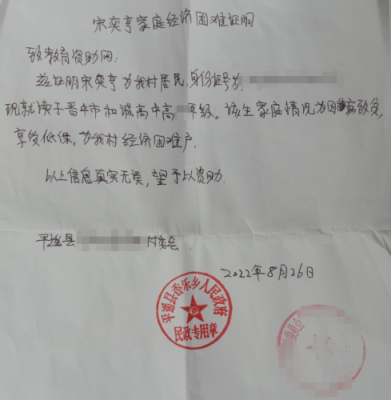 宋奕亨家庭经济困难证明
致教育资助网:
兹证明宋奕亨为我村居民,身份证号为
现就读于晋中市和诚高中高 年级。该生家庭情况为因病致贫,
享受低保,为我村经济困难户.
以上信息真实无误,望予以资助.
平遥县 村委会.
2022年8月26日
平遥县香乐乡人民政府
民政专用章